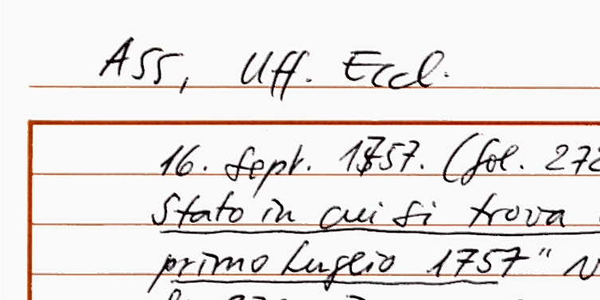 ASS, Uff. Eccl.
16. Sept. 1757. (fol. 272
Stato in cui si trova
primo Luglio 1757"